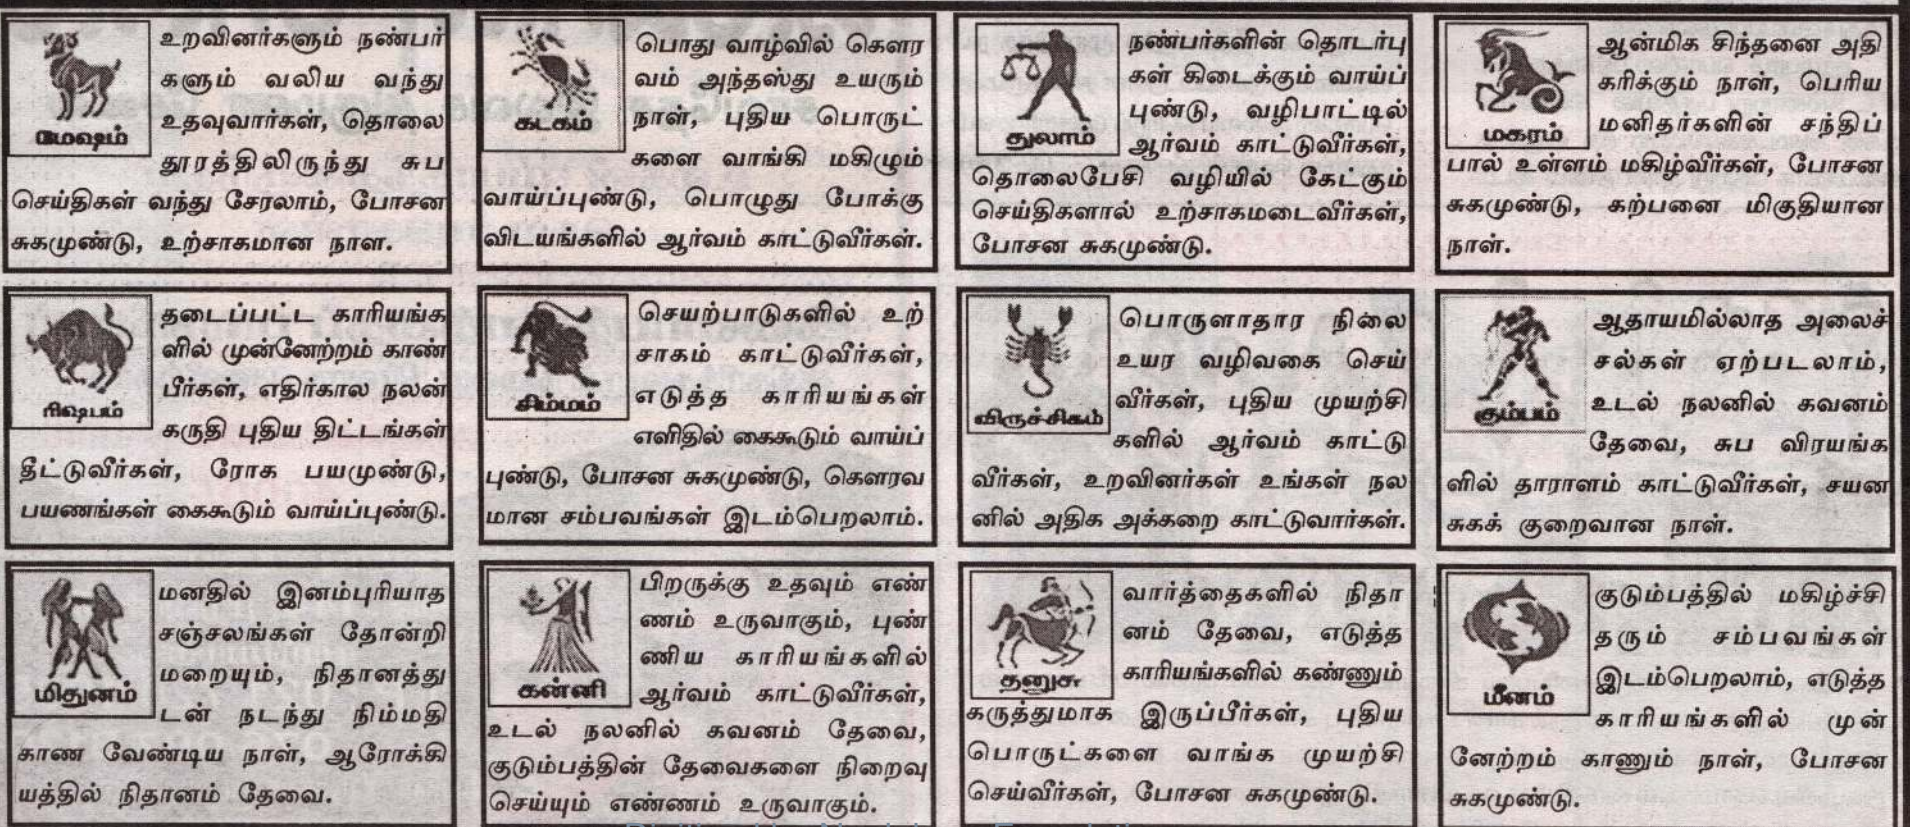 மேஷம்
உறவினர்களும் நண்பர்
களும் வலிய வந்து
உதவுவார்கள், தொலை
தூரத்திலிருந்து சுப
செய்திகள் வந்து சேரலாம், போசன
சுகமுண்டு, உற்சாகமான நாள.
ரிஷபம்
தடைப்பட்ட காரியங்க
ளில் முன்னேற்றம் காண்
பீர்கள், எதிர்கால நலன்
கருதி புதிய திட்டங்கள்
தீட்டுவீர்கள், ரோக பயமுண்டு,
பயணங்கள் கைகூடும் வாய்ப்புண்டு.
மிதுனம்
மனதில் இனம்புரியாத
சஞ்சலங்கள் தோன்றி
மறையும், நிதானத்து
டன் நடந்து நிம்மதி
காண வேண்டிய நாள், ஆரோக்கி
யத்தில் நிதானம் தேவை.
கடகம்
பொது வாழ்வில் கௌர
வம் அந்தஸ்து உயரும்
நாள், புதிய பொருட்
களை வாங்கி மகிழும்
வாய்ப்புண்டு, பொழுது போக்கு
விடயங்களில் ஆர்வம் காட்டுவீர்கள்.
சிம்மம்
செயற்பாடுகளில் உற்
சாகம் காட்டுவீர்கள்,
எடுத்த காரியங்கள்
எளிதில் கைகூடும் வாய்ப்
புண்டு, போசன சுகமுண்டு, கௌரவ
மான சம்பவங்கள் இடம்பெறலாம்.
கன்னி
பிறருக்கு உதவும் எண்
ணம் உருவாகும், புண்
ணிய காரியங்களில்
ஆர்வம் காட்டுவீர்கள்,
உடல் நலனில் கவனம் தேவை,
குடும்பத்தின் தேவைகளை நிறைவு
செய்யும் எண்ணம் உருவாகும்.
துலாம்
நண்பர்களின் தொடர்பு
கள் கிடைக்கும் வாய்ப்
புண்டு, வழிபாட்டில்
ஆர்வம் காட்டுவீர்கள்,
தொலைபேசி வழியில் கேட்கும்
செய்திகளால் உற்சாகமடைவீர்கள்,
போசன சுகமுண்டு.
விருச்சிகம்
பொருளாதார நிலை
உயர வழிவகை செய்
வீர்கள், புதிய முயற்சி
களில் ஆர்வம் காட்டு
வீர்கள், உறவினர்கள் உங்கள் நல
னில் அதிக அக்கறை காட்டுவார்கள்.
தனுசு
வார்த்தைகளில் நிதா
னம் தேவை, எடுத்த
காரியங்களில் கண்ணும்
கருத்துமாக இருப்பீர்கள், புதிய
பொருட்களை வாங்க முயற்சி
செய்வீர்கள், போசன சுகமுண்டு.
மகரம்
ஆன்மிக சிந்தனை அதி
கரிக்கும் நாள், பெரிய
மனிதர்களின் சந்திப்
பால் உள்ளம் மகிழ்வீர்கள், போசன
சுகமுண்டு, கற்பனை மிகுதியான
நாள்.
கும்பம்
ஆதாயமில்லாத அலைச்
சல்கள் ஏற்படலாம்,
உடல் நலனில் கவனம்
தேவை, சுப விரயங்க
ளில் தாராளம் காட்டுவீர்கள், சயன
சுகக் குறைவான நாள்.
மீனம்
குடும்பத்தில் மகிழ்ச்சி
தரும் சம்பவங்கள்
இடம்பெறலாம், எடுத்த
காரியங்களில் முன்
னேற்றம் காணும் நாள், போசன
சுகமுண்டு.